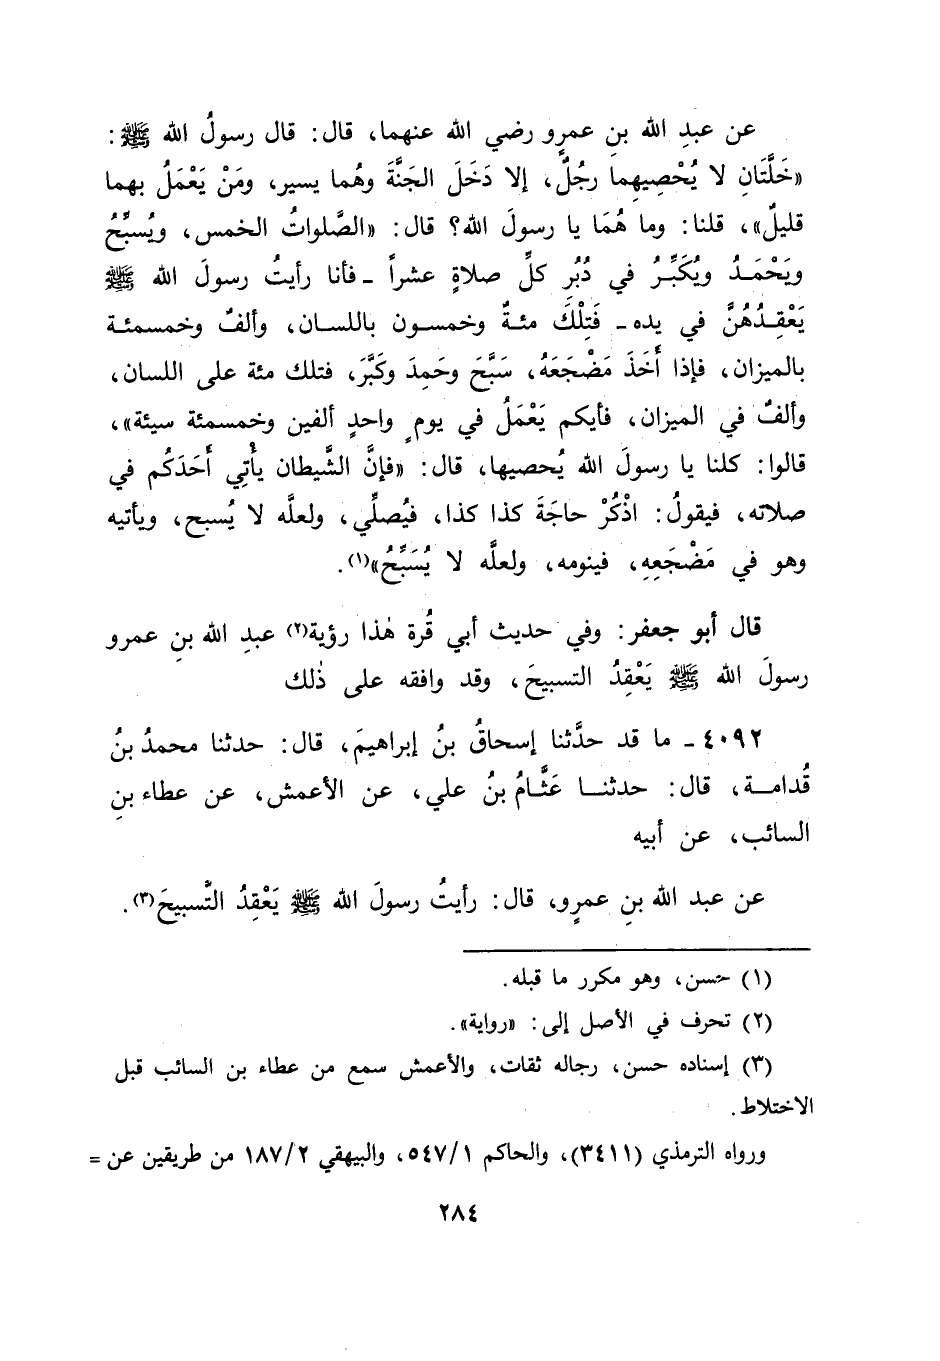 عن عبدِ الله بنِ عمرٍو رضي الله عنهما، قال: قال رسولُ الله ﷺ:
«خَلَّتَانِ لا يُحْصِيهِما رجُلٌ، إلا دَخَلَ الجَنَّةَ وهُما يسير، ومَنْ يَعْمَلُ بهما
قليلٌ»، قلنا: وما هُمَا يا رسولَ الله؟ قال: «الصَّلواتُ الخمس، ويُسبِّحُ
ويَحْمَدُ ويُكَبِّرُ في دُبُر كلِّ صلاةٍ عشراً ـ فأنا رأيتُ رسولَ الله ﷺ
يَعْقِدُهُنَّ في يده ـ فَتِلْكَ مئةٌ وخمسون باللسان، وألفٌ وخمسمئة
بالميزان، فإذا أَخَذَ مَضْجَعَهُ، سَبَّحَ وحَمِدَ وكَبَّرَ، فتلك مئة على اللسان،
وألفٌ في الميزان، فأيكم يَعْمَلُ في يومٍ واحدٍ ألفين وخمسمئة سيئة»،
قالوا: كلنا يا رسولَ الله يُحصيها، قال: «فإنَّ الشَّيطان يأْتِي أَحَدَكُم في
صلاته، فيقولُ: اذْكُرْ حاجَةَ كذا كذا، فيُصلِّي، ولعلَّه لا يُسبح، ويأتيه
وهو في مَضْجَعِهِ، فينومه، ولعلَّه لا يُسَبِّحُ»(١).
قال أبو جعفر: وفي حديث أبي قُرة هٰذا رؤية(٢) عبدِ الله بنِ عمرو
رسولَ الله ﷺ يَعْقِدُ التسبيحَ، وقد وافقه على ذٰلك
٤٠٩٢ ـ ما قد حدَّثنا إسحاقُ بنُ إبراهيمَ، قال: حدثنا محمدُ بنُ
قُدامة، قال: حدثنا عَثَّامُ بنُ علي، عن الأعمش، عن عطاء بنِ
السائب، عن أبيه
عن عبد الله بنِ عمرٍو، قال: رأيتُ رسولَ الله ﷺ يَعْقِدُ التَّسبيحَ(٣).
(١) حسن، وهو مكرر ما قبله.
(٢) تحرف في الأصل إلى: «رواية».
(٣) إسناده حسن، رجاله ثقات، والأعمش سمع من عطاء بن السائب قبل
الاختلاط.
ورواه الترمذي (٣٤١١)، والحاكم ٥٤٧/١، والبيهقي ١٨٧/٢ من طريقين عن =
٢٨٤